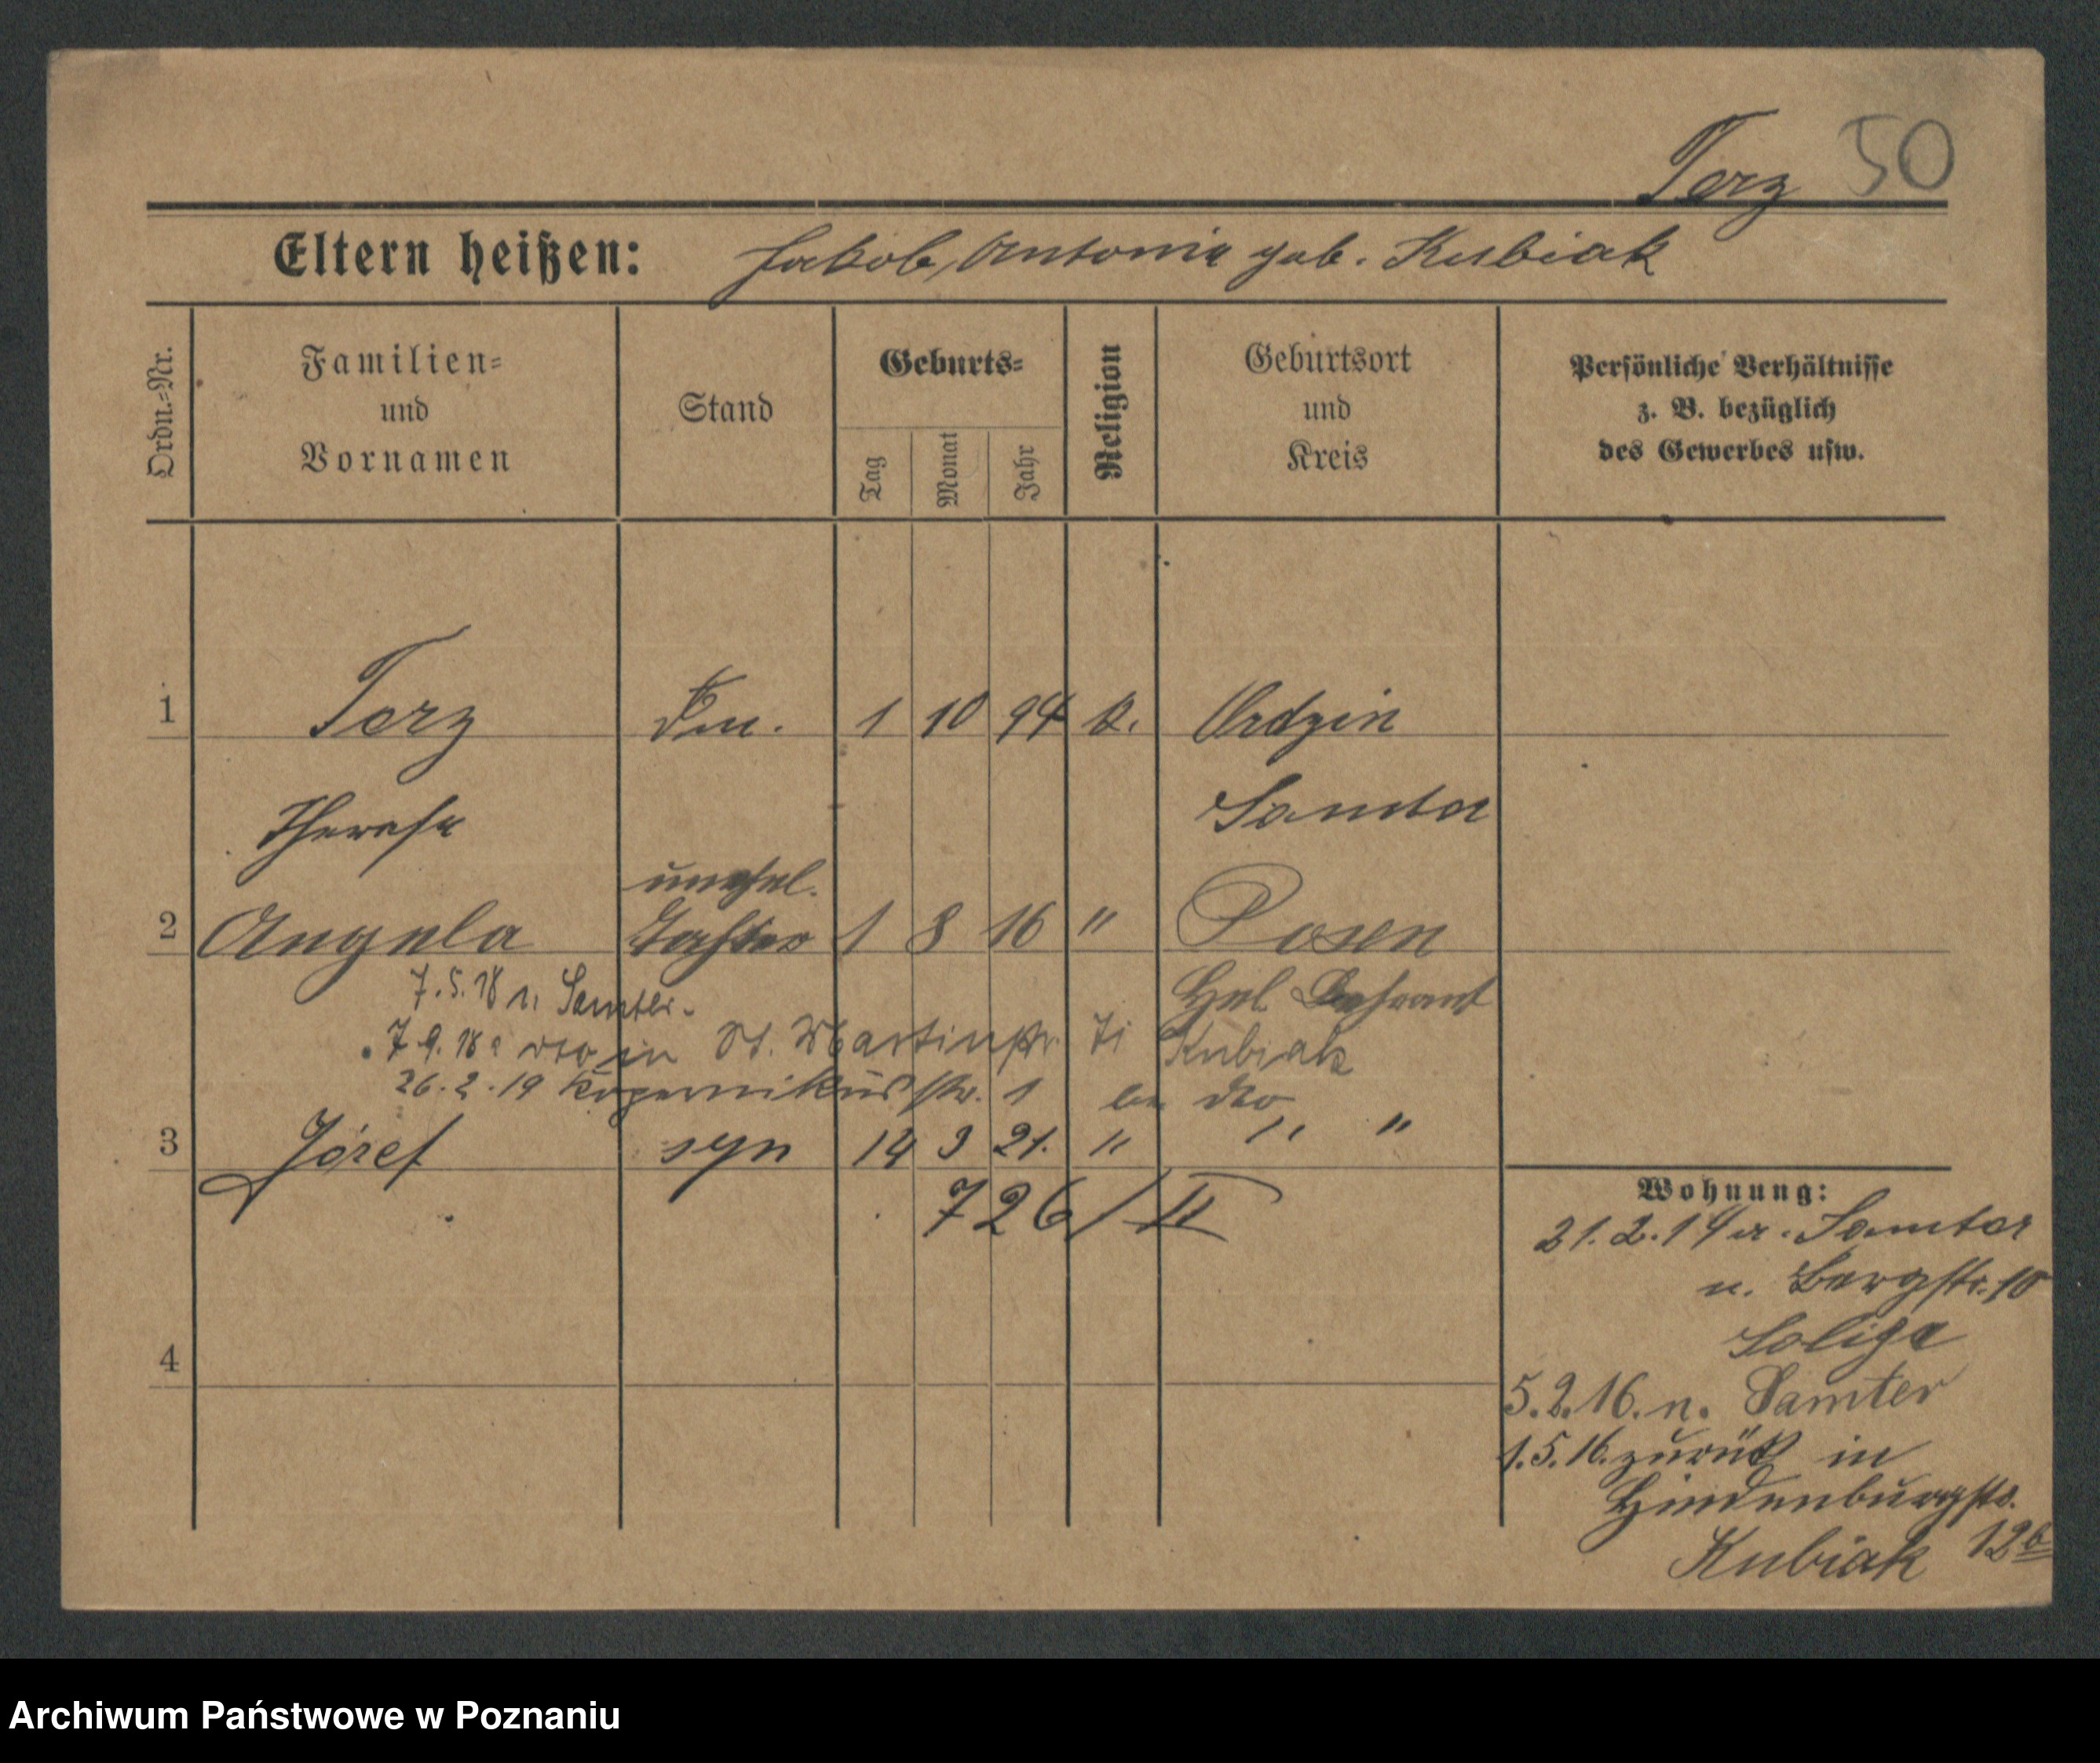 Torz 50
Eltern heißen: Jakob, Antonie geb. Kubiak
Ordn.-Nr.
Familien-
und
Vornamen
Stand
Geburts-
Tag
Monat
Jahr
Religion
Geburtsort
und
Kreis
Persönliche Verhältnisse
z. B. bezüglich
des Gewerbes usw.
1 Torz 1 10 94 k. Ordzin
Therese Samter
unehel.
2 Angela Tochter 1 8 16 " Posen
7.5.18 n. Samter.
7.9.18 dto in St. Martinstr. Kubiak
26.2.19 Kopernikusstr. 1 bei dto
3 Józef syn 14 3 21. " " "
726/II
4
Wohnung:
21.2.14 a. Samter
n. Bergstr. 10
5.2.16. n. Samter
1.5.16. zurück in
Hindenburgstr.
Kubiak 12b
Archiwum Państwowe w Poznaniu